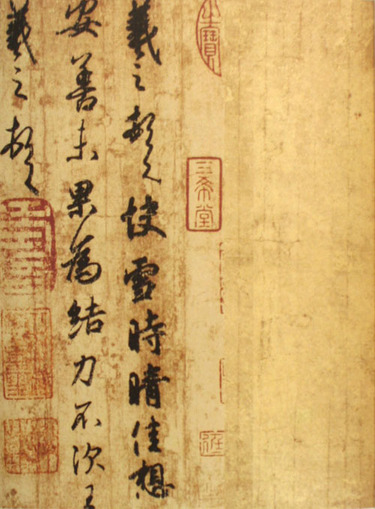 三希堂
羲之頓首快雪時晴佳想
安善未果為結力不次王
羲之頓首